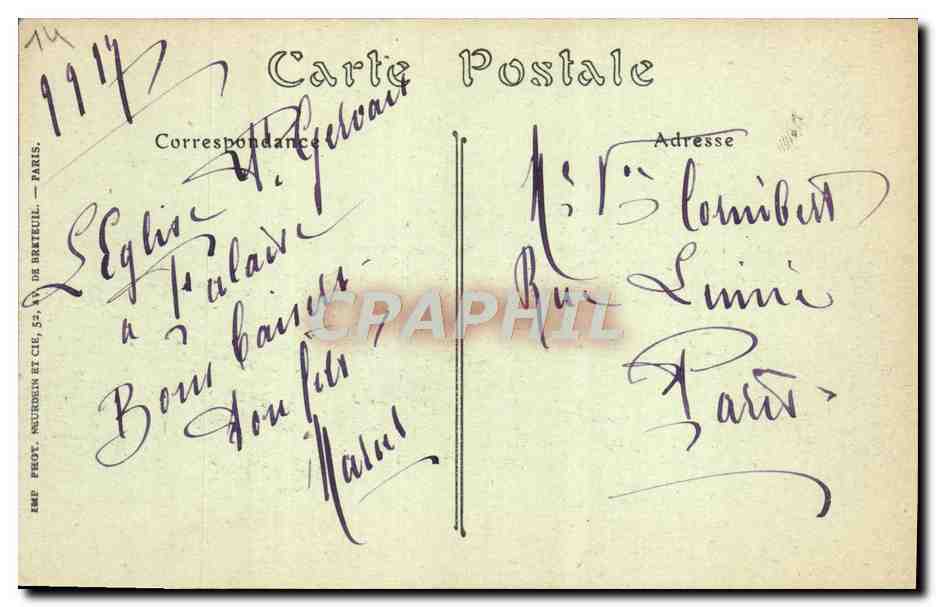 14
1917
Carte Postale
Correspondance
Adresse
L'Eglise St. Gervais
a Falaise
Bons baisers
ton fils
Rue Linné
Paris
CPARAMA
IMP. PHOT. NEURDEIN ET CIE, 52, AV. DE BRETEUIL. — PARIS.